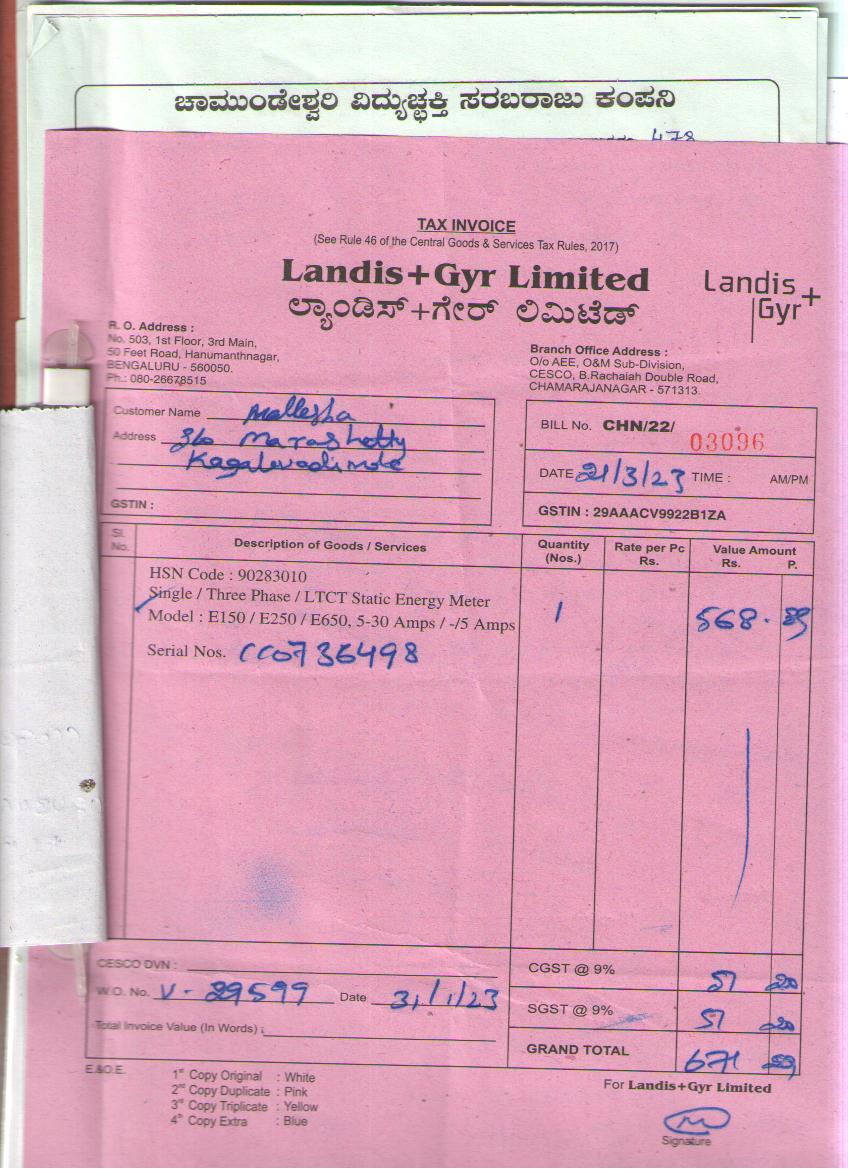 ಚಾಮುಂಡೇಶ್ವರಿ ವಿದ್ಯುಚ್ಛಕ್ತಿ ಸರಬರಾಜು ಕಂಪನಿ
478
TAX INVOICE
(See Rule 46 of the Central Goods & Services Tax Rules, 2017)
Landis+Gyr Limited
Landis+
Gyr
ಲ್ಯಾಂಡಿಸ್+ಗೇರ್ ಲಿಮಿಟೆಡ್
R. O. Address :
No. 503, 1st Floor, 3rd Main,
50 Feet Road, Hanumanthnagar,
BENGALURU - 560050.
Ph.: 080-26678515
Branch Office Address :
O/o AEE, O&M Sub-Division,
CESCO, B.Rachaiah Double Road,
CHAMARAJANAGAR - 571313.
Customer Name Mallesha
Address S/o Marashetty
GSTIN :
BILL No. CHN/22/ 03096
DATE 21/3/23 TIME : AM/PM
GSTIN : 29AAACV9922B1ZA
Sl. No. Description of Goods / Services Quantity (Nos.) Rate per Pc Rs. Value Amount Rs. P.
HSN Code : 90283010
Single / Three Phase / LTCT Static Energy Meter
Model : E150 / E250 / E650, 5-30 Amps / -/5 Amps 1 568. 89
Serial Nos. CC0736498
CESCO DVN :
W.O. No. V - 29599 Date 31/1/23
Total Invoice Value (In Words) :
CGST @ 9% 51 20
SGST @ 9% 51 20
GRAND TOTAL 671
E.&O.E.
1st Copy Original : White
2nd Copy Duplicate : Pink
3rd Copy Triplicate : Yellow
4th Copy Extra : Blue
For Landis+Gyr Limited
Signature